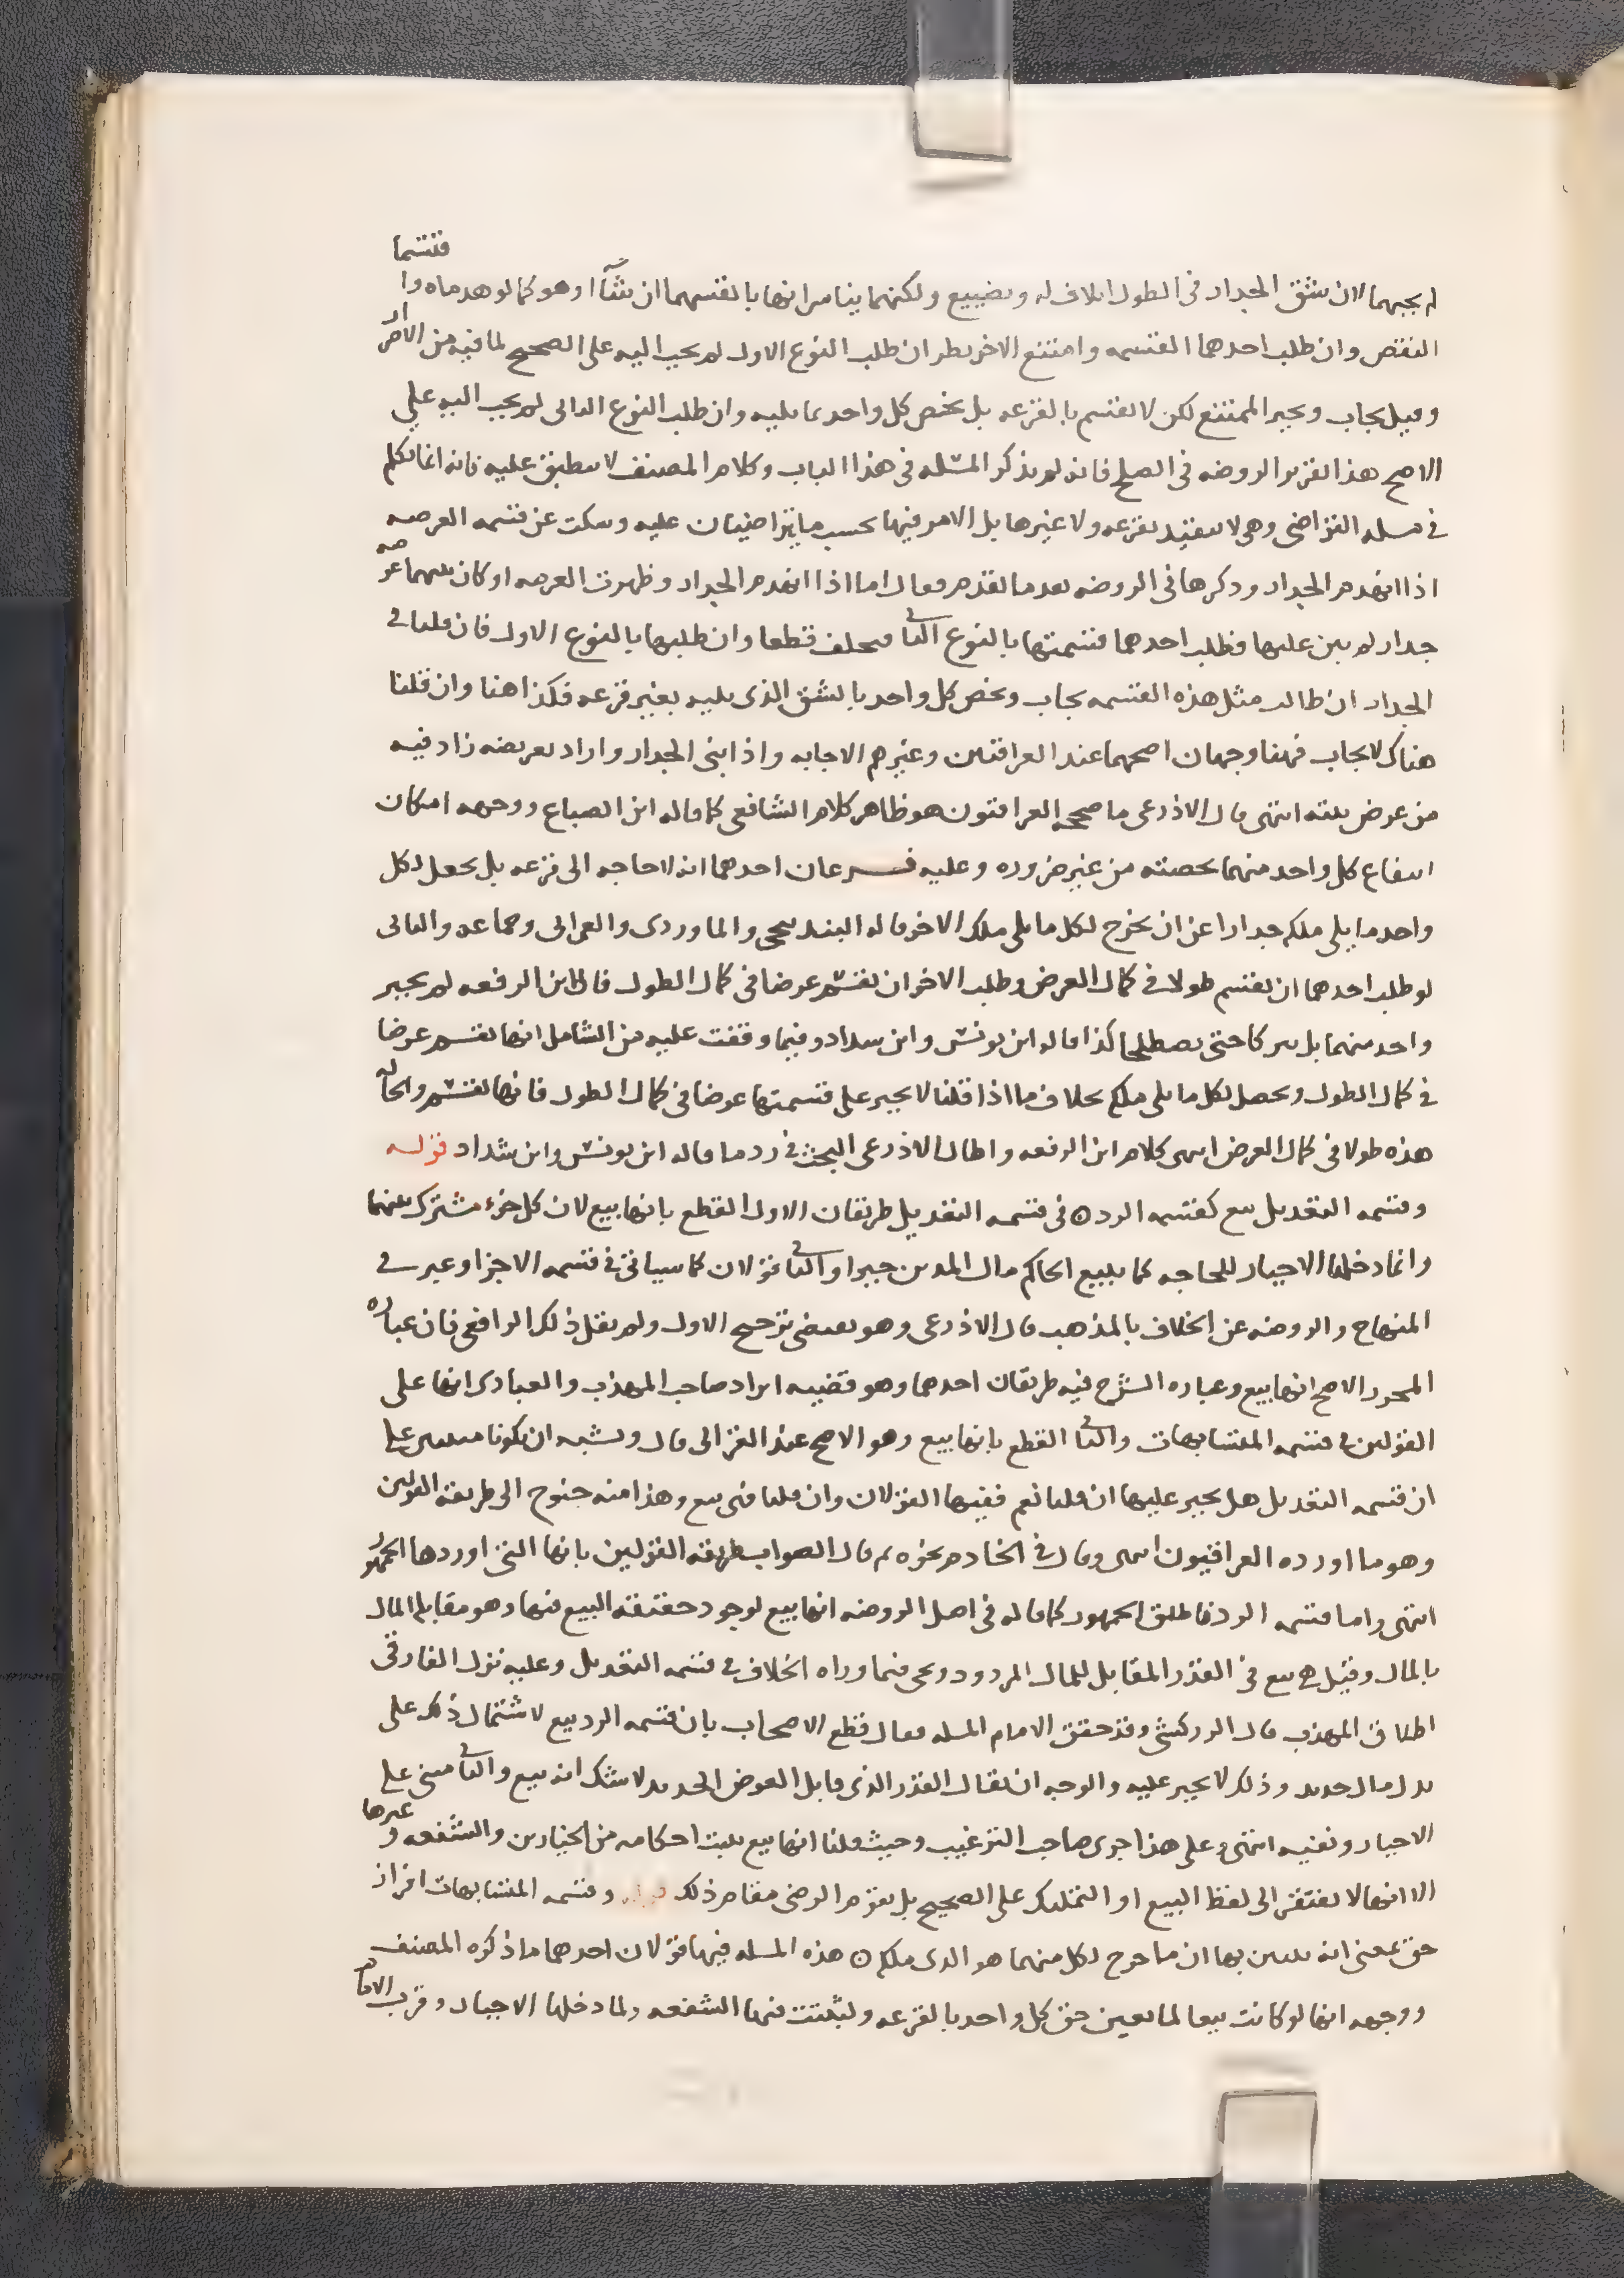 لم يجبهما لان شق الجدار في الطول اتلاف له وتضييع ولكنهما يباشرانها بانفسهما ان شاآ وهو كما لو هدماه واقتسما
النقض وان طلب احدهما القسمه وامتنع الاخر نظر ان طلب النوع الاول لم يجب اليه على الصحيح لما فيه من الاضرار
وقيل يجاب ويجبر الممتنع لكن لا تقسم بالقرعه بل يخص كل واحد بما يليه وان طلب النوع الثاني لم يجب اليه على
الاصح هذا تقرير الروضه في الصلح فانه لم يذكر المسئله في هذا الباب وكلام المصنف لا ينطبق عليه فانه انما تكلم
في مسله التراضي وهي لا تتقيد بقرعه ولا غيرها بل الامر فيها بحسب ما يتراضيان عليه وسكت عن قسمه العرصه
اذا انهدم الجدار وذكرها في الروضه بعد ما تقدم فقال اما اذا انهدم الجدار وظهرت العرصه او كان بينهما عرصه
جدار لم يبن عليها فطلب احدهما قسمتها بالنوع الثاني فيحلف قطعا وان طلبها بالنوع الاول فان قلنا في
الجدار ان طالب مثل هذه القسمه يجاب ويخص كل واحد بالشق الذي يليه بغير قرعه فكذا هنا وان قلنا
هناك لا يجاب فهنا وجهان اصحهما عند العراقيين وغيرهم الاجابه واذا بنى الجدار واراد تعريضه زاد فيه
من عرض بيته انتهى قال الاذرعي ما صححه العراقيون هو ظاهر كلام الشافعي كما قاله ابن الصباغ ووجهه امكان
انتفاع كل واحد منهما بحصته من غير ضروره وعليه فرعان احدهما انه لا حاجه الى قرعه بل يجعل لكل
واحد ما يلي ملكه جدارا عن ان يخرج لكل ما يلي ملك الاخر قاله البندنيجي والماوردي والعمراني وجماعه والثاني
لو طلب احدهما ان تقسم طولا في كمال العرض وطلب الاخر ان تقسم عرضا في كمال الطول قال ابن الرفعه لم يجبر
واحد منهما بل يتركا حتى يصطلحا كذا قاله ابن يونس وابن شداد وفيما وقفت عليه من الشامل انها تقسم عرضا
في كمال الطول ويحصل لكل ما يلي ملكه بخلاف ما اذا قلنا لا يجبر على قسمتها عرضا في كمال الطول فانها تقسم والحاله
هذه طولا في كمال العرض انتهى كلام ابن الرفعه واطال الاذرعي البحث في رد ما قاله ابن يونس وابن شداد قوله
وقسمه التعديل بيع كقسمه الرد ۞ في قسمه التعديل طريقان الاول القطع بانها بيع لان كل جزء مشترك بينهما
وانما دخلها الاجبار للحاجه كما يبيع الحاكم مال المدين جبرا والثاني قولان كما سياتي في قسمه الاجزا وعبر في
المنهاج والروضه عن الخلاف بالمذهب قال الاذرعي وهو يقتضي ترجيح الاول ولم يقل ذلك الرافعي فان عباره
المحرر الاصح انها بيع وعباره الشرح فيه طريقان احدهما وهو قضيه ايراد صاحب المهذب والعبادي انها على
القولين في قسمه المتشابهات والثاني القطع بانها بيع وهو الاصح عند الغزالي قال ويشبه ان يكونا مبنيين على
ان قسمه التعديل هل يجبر عليها ان قلنا نعم ففيها القولان وان قلنا فهي بيع وهذا منه جنوح الى طريقه القولين
وهو ما اورده العراقيون انتهى وقال في الخادم نحوه ثم قال الصواب طريقه القولين بانها التي اوردها الجمهور
انتهى واما قسمه الرد فاطلق الجمهور كما قاله في اصل الروضه انها بيع لوجود حقيقه البيع فيها وهو مقابله المال
بالمال وقيل هي بيع في القدر المقابل للمال المردود ويجي فيما وراه الخلاف في قسمه التعديل وعليه نزل الفارقي
اطلاق المهذب قال الزركشي وقد حقق الامام المسله فقال قطع الاصحاب بان قسمه الرد بيع لاشتمال ذلك على
بذل مال جديد وذلك لا يجبر عليه والوجه ان يقال القدر الذي قابل العوض الجديد لا شك انه بيع والثاني مبني على
الاجبار ونفيه انتهى وعلى هذا جرى صاحب الترغيب وحيث قلنا انها بيع يثبت احكامه من الخيارين والشفعه وغيرها
الا انها لا تفتقر الى لفظ البيع او التمليك على الصحيح بل يقوم الرضى مقام ذلك قوله وقسمه المتشابهات افراز
حق بمعنى انه يتبين بها ان ما خرج لكل منهما هو الذي ملكه ۞ هذه المسله فيها قولان احدهما ما ذكره المصنف
ووجهه انها لو كانت بيعا لما تعين حق كل واحد بالقرعه ولثبتت فيها الشفعه ولما دخلها الاجبار وقرب الامام